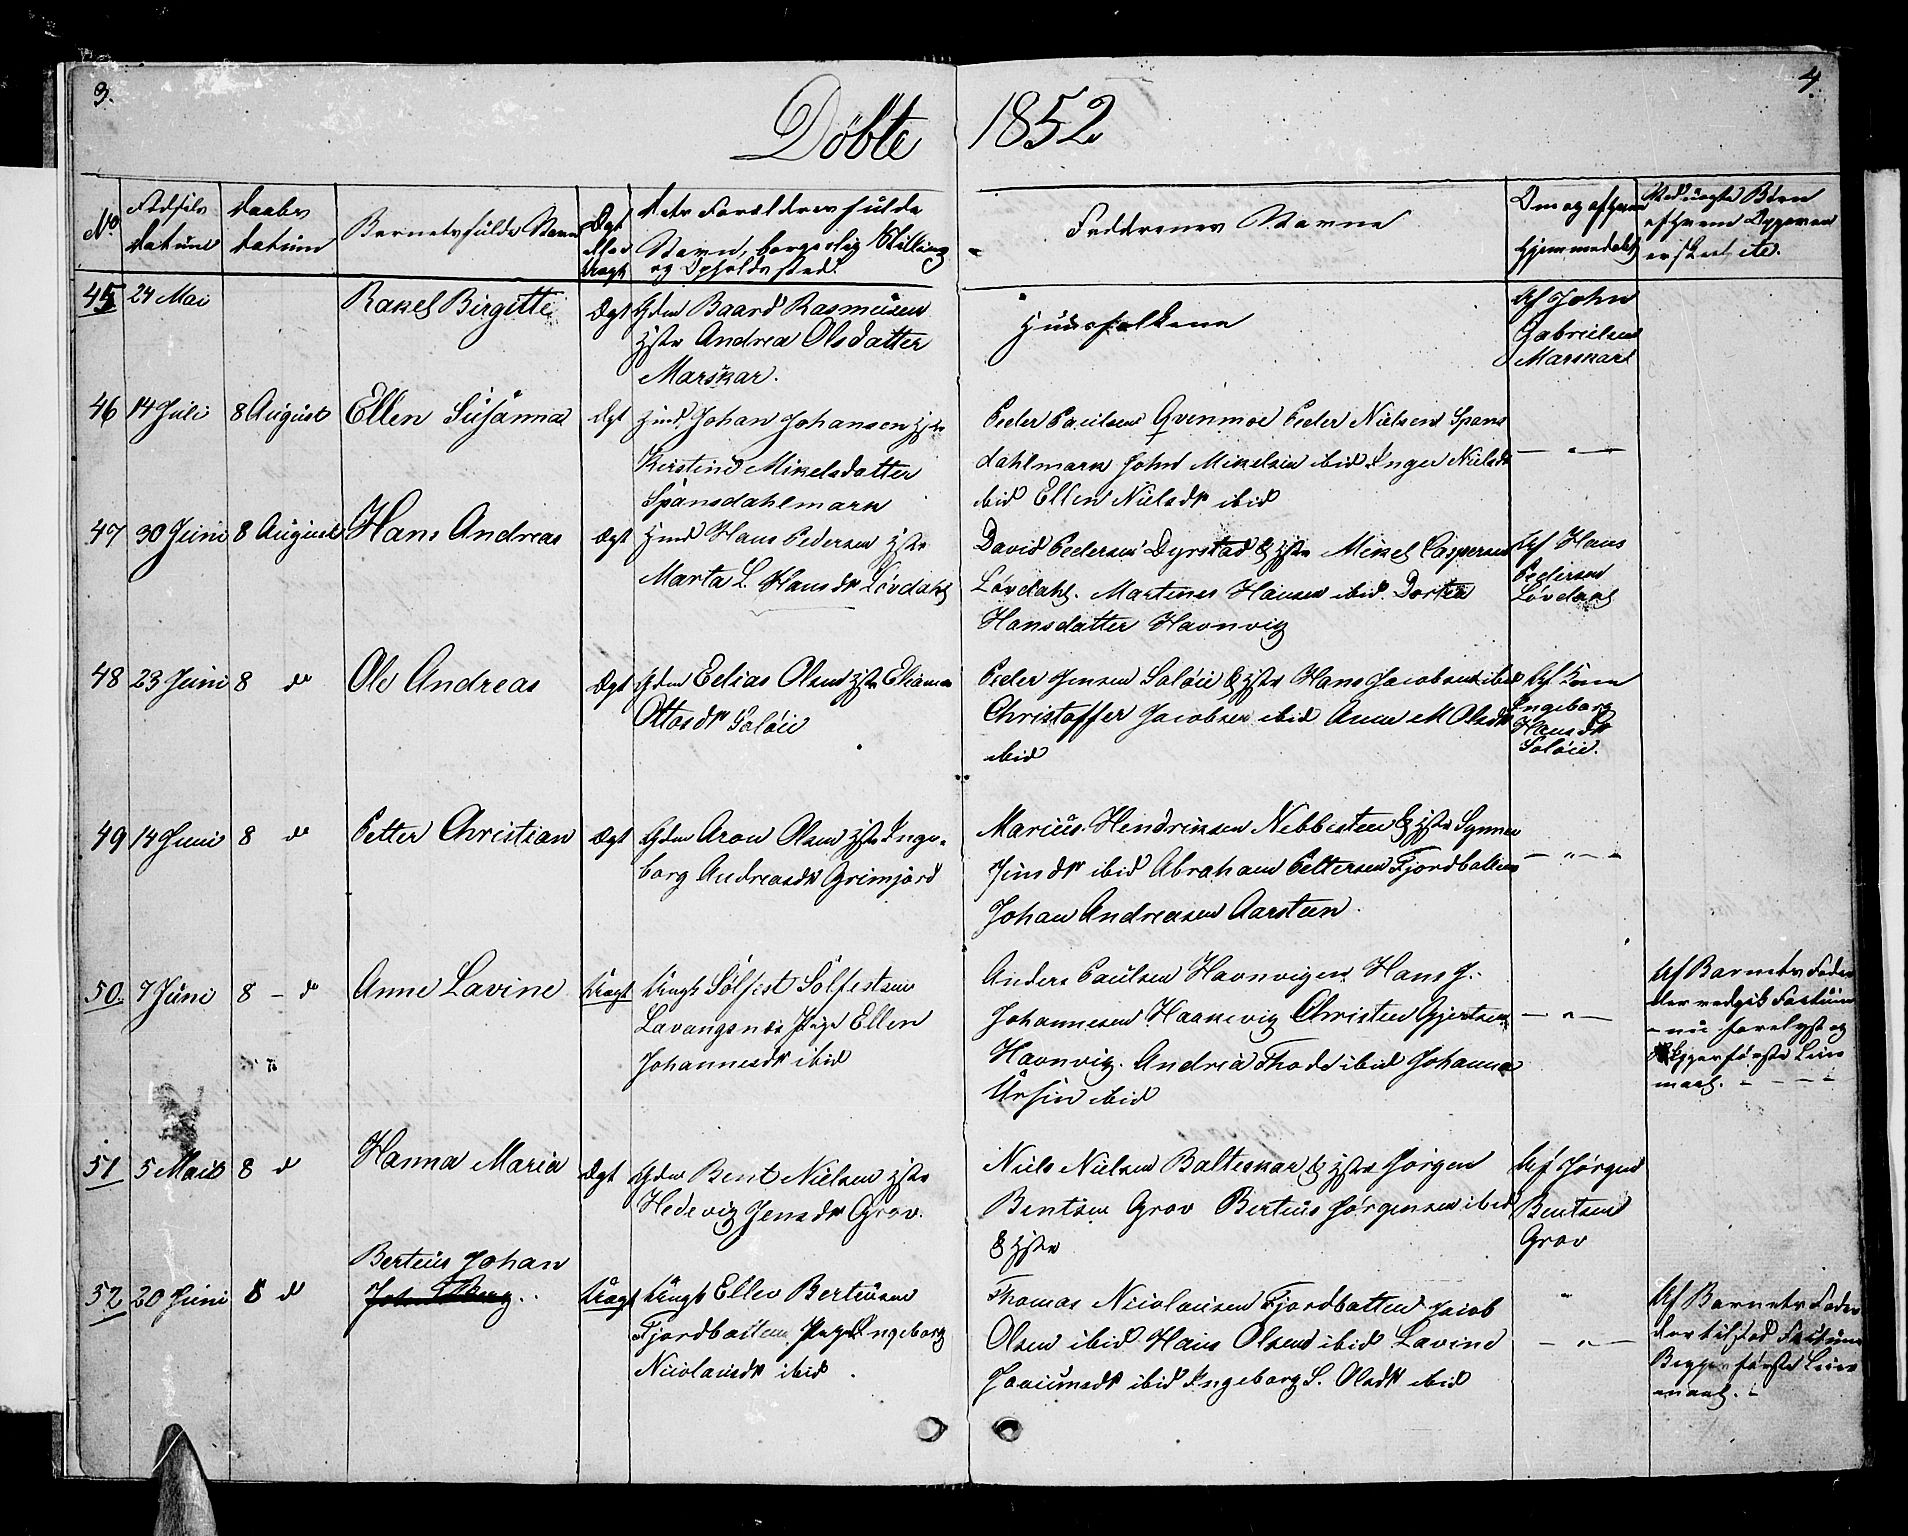 3.
4.
Döbte 1852
No
Födsels datum
Daabs datum
Barnets fulde Navn
Ægt eller Uægt
Forældres fulde Navn, borgerlig Stilling og Opholdssted.
Faddrenes Navne
Om og af hvem hjemmedøbt
Uægte Børn
45 24 Mai
Rakel Birgitte
Ægt
Gdm Baard Rasmusen
Hstr Andrea Olsdatter
Marskar.
Huusfolkene
Af John
Gabrielsen
Marskar
46 14 Juli 8 August
Ellen Susanna
Ægt
Hmd Johan Johansen Hstr
Kirstine Mikelsdatter
Spansdahlmark
Peder Paulsen Qvenmoe Peder Nielsen Spans
dahlmark John Mikelsen ibid Inger Nielsdr
ibid Ellen Nielsdr ibid
— " —
47 30 Juni 8 August
Hans Andreas
Ægt
Hmd Hans Pedersen Hstr
Marta L. Hansdr Lövdahl
David Pedersen Dyrstad & Hstr Mikel Caspersen
Lövdahl. Martines Hansen ibid. Dortea
Hansdatter Havnvig
Af Hans
Pedersen
Lövdahl
48 23 Juni 8 do
Ole Andreas
Ægt
Gdm Eelias Olsen Hstr
Ottosdr Salöie
Peder Jensen Salöie & Hstr Hans Jacobsen ibid
Christoffer Jacobsen ibid Anne M Olsdr
ibid
Af Kone
Ingeborg
Hansdr
Salöie.
49 14 Juni 8 do
Petter Christian
Ægt
Gdm Aron Olsen Hstr Inge-
borg Andreasdr Grimjord
Marius Hendriksen Nebbesteen & Hstr Synner
Jensdr ibid Abraham Pettersen Fjordbotten
Johan Andreasen Aarsteen.
— " —
50. 7 Juni 8 — do
Anne Lavine
Uægt
Ungk Sölfest Sölfestsen
Lavangsnæs Pige Ellen
Johannesdr ibid
Anders Paulsen Havnvigen Hans J.
Johannesen Haakevig Christen Gjertsen
Havnvig. Andrea Thode ibid Johanna
Ursin ibid
— " —
Af Barnets Fader
der vedgik Factum
nu forelyst og
Begges første Leier
maal.
51 5 Mai 8 d
Hanna Maria
Ægt
Gdm Bent Nielsen Hstr
Hedevig Jensdr Grov.
Niels Nielsen Balteskar & Hstr Jörgen
Bentsen Grov Berteus Jörgensen ibid
& Hstr
Af Jörgen
Bentsen
Grov
52 20 Juni 8 d
Berteus Johan
Uægt
Ungk Ellev Berteusen
Fjordbotten Pige Ingeborg
Nicolaisdr ibid
Thomas Nicolaisen Fjordbotten Jacob
Olsen ibid Hans Olsen ibid Lavine
Joacimsdr ibid Ingeborg S. Olsdr ibid
— " —
Af Barnets Fader
der tilstod Factum
Begges første Leier
maal.